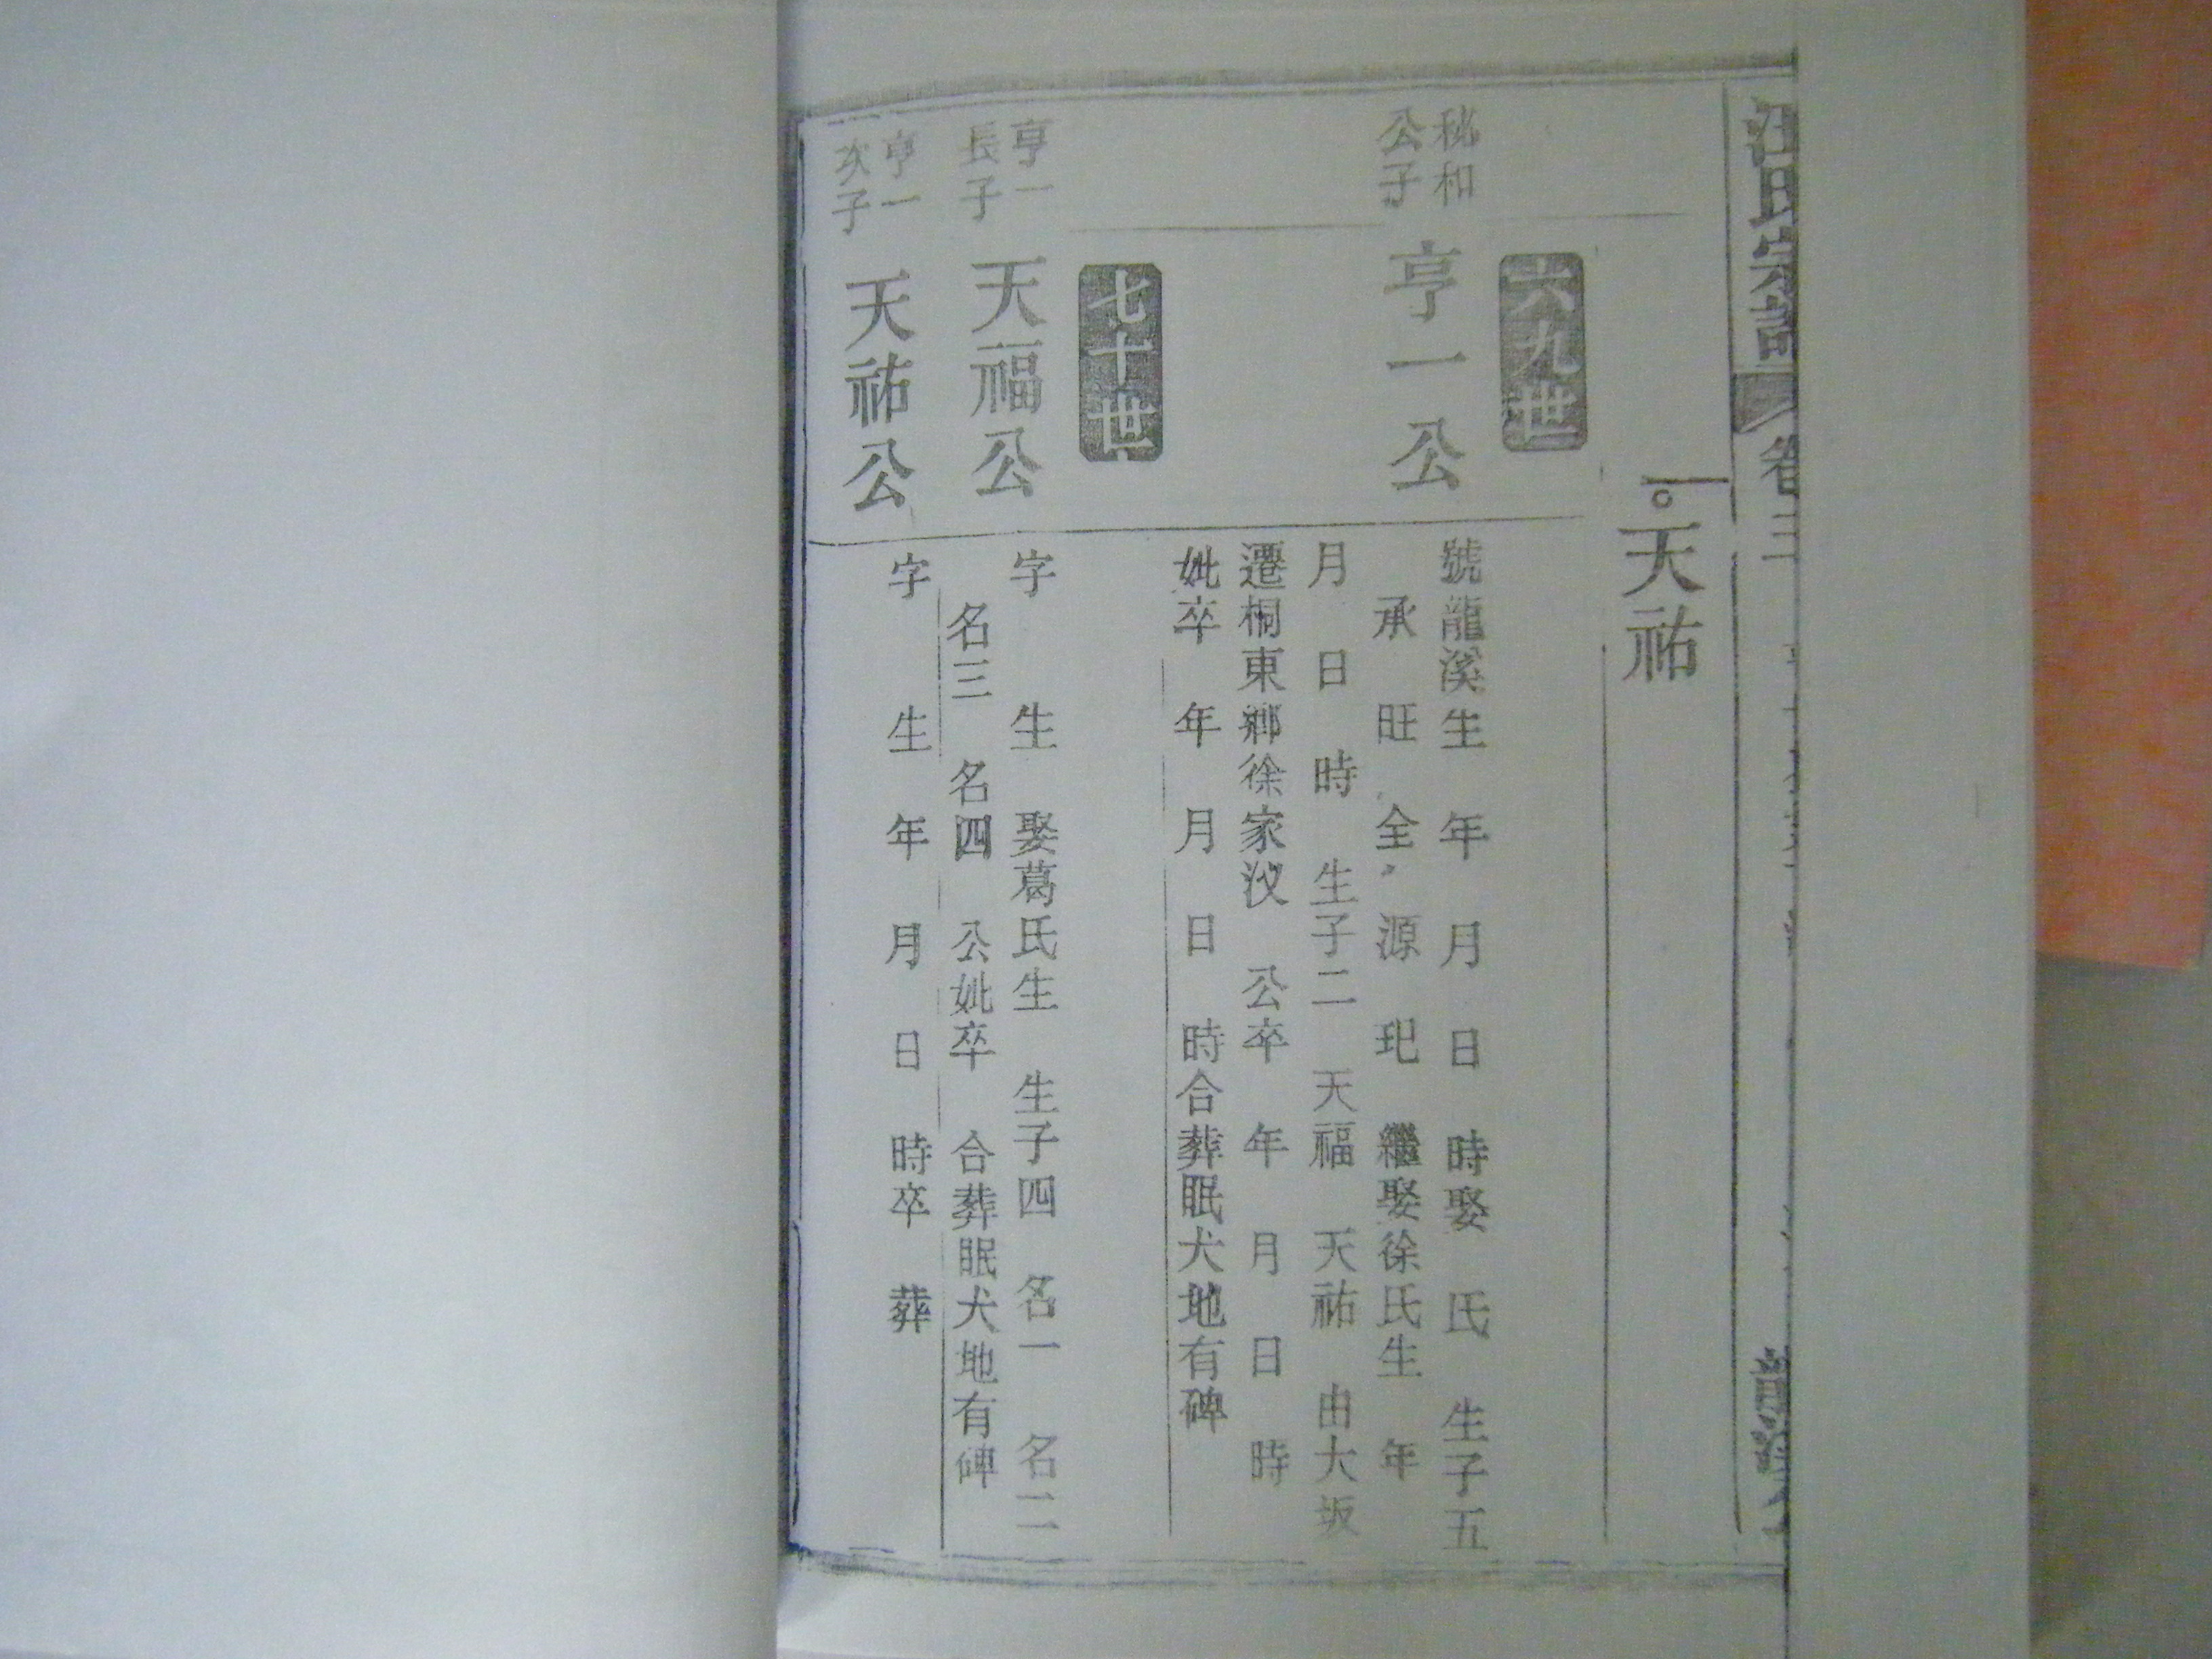 汪氏宗譜 卷三
天祐
六九世
秘和
公子
亨一公
號龍溪生 年 月 日 時娶 氏 生子五
承 旺 全 源 玘 繼娶徐氏生 年
月 日 時 生子二 天福 天祐 由大坂
遷桐東鄉徐家汊 公卒 年 月 日 時
妣卒 年 月 日 時合葬眠犬地有碑
七十世
亨一
長子
天福公
字 生 娶葛氏生 生子四 名一 名二
名三 名四 公妣卒 合葬眠犬地有碑
亨一
次子
天祐公
字 生 年 月 日 時卒 葬